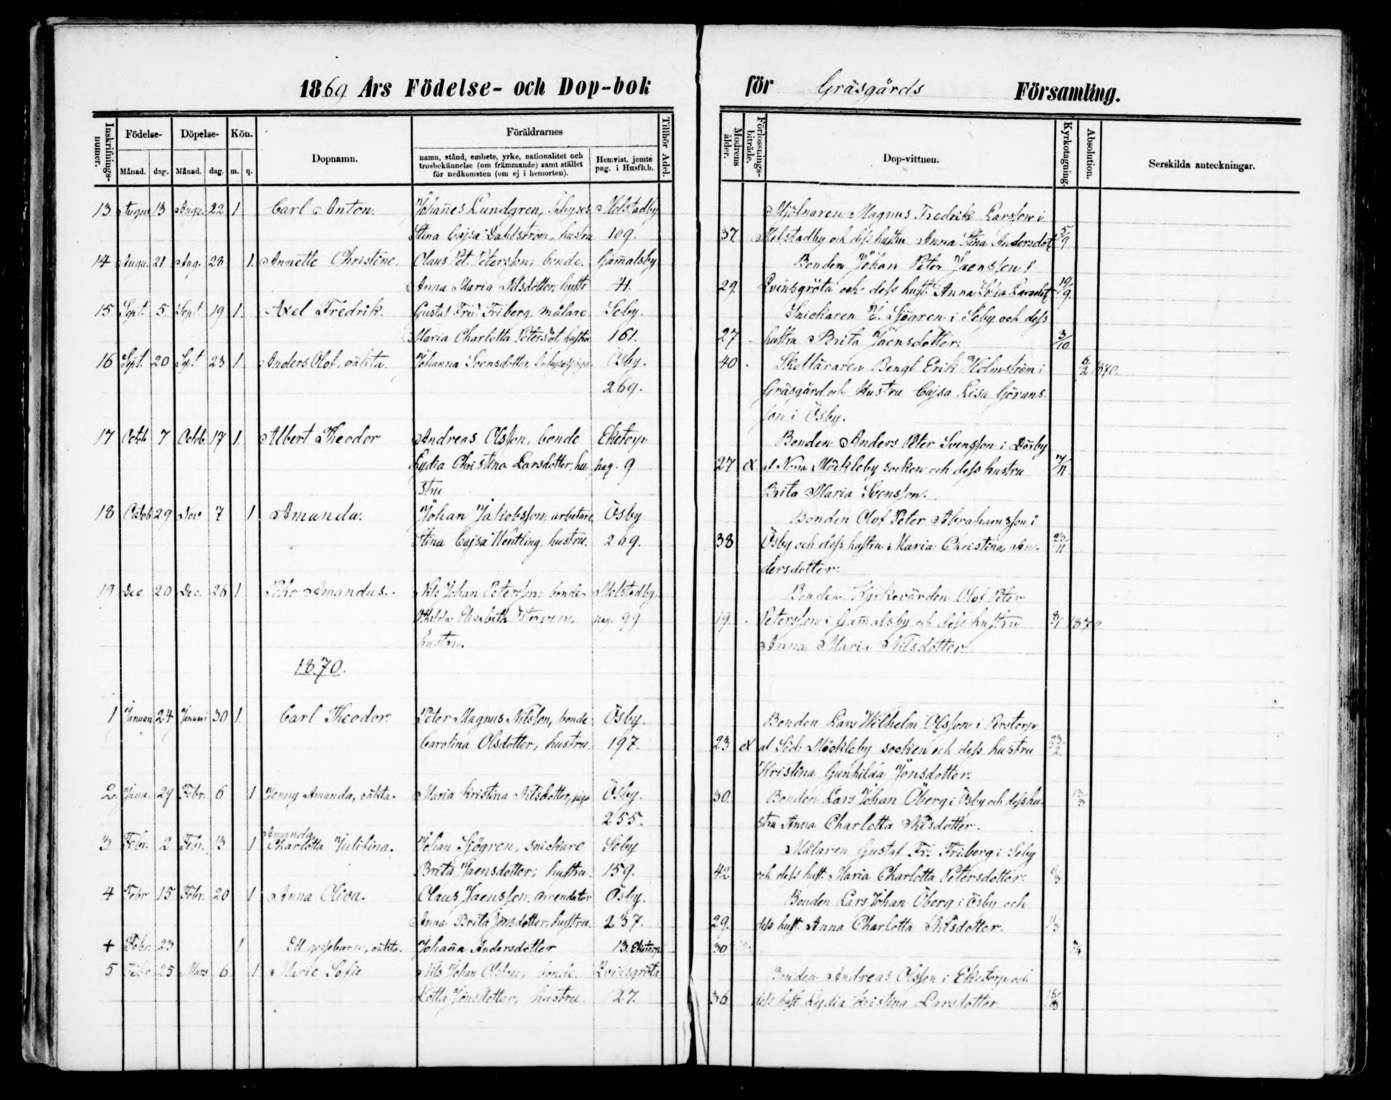 1869 Års Födelse- och Dop-bok för Gräsgårds Församling.
Inskrifnings-numer. Födelse- Månad. dag. Döpelse- Månad. dag. Kön. m. q. Dopnamn. Föräldrarnes namn, stånd, embete, yrke, nationalitet och trosbekännelse (om främmande) samt stället för nedkomsten (om ej i hemorten). Hemvist, jemte pag. i Husfh.b. Tillhör Adel. Modrens ålder. Förlossnings-biträde. Dop-vittnen. Kyrkotagning. Absolution. Serskilda anteckningar.
13 Augu. 13 Augu. 22 1. Carl Anton. Johannes Lundgren, Mölstadby Mjölnaren Magnus Fredrik Larsson i
Stina Cajsa Dahlström, hustru 109. 37 Mölstadby och dess hustru Anna Stina Andersdot 5/9
14 Augu. 21 Aug. 28 1. Annette Christine. Claus Pet. Petersson, bonde. Gamalsby Bonden Johan Peter Jaensson i
Anna Maria Nilsdotter, hustr 4. 29. Qvinsgröta och dess hust. Anna Sofia 19/9
15 Sept. 5 Sept 19 1. Axel Fredrik. Gustaf Fr. Friberg, målare Seby. Snickaren E. Sjögren i Seby och dess
Maria Charlotta Petersdot, hustru 161. 27 hustru Brita Jaensdotter. 3/10
16 Sept. 20 Sept. 23 1. Anders Olof, oäkta. Johanna Svensdotter, Ösby. 40 Skolläraren Bengt Erik Holmström i 6/2 1870.
269. Gräsgård och hustru Cajsa Lisa Görans
son i Ösby.
17 Octob 7 Octob 17 1. Albert Theodor Andreas Olsson, bonde Eketorp Bonden Anders Peter Svensson i
Lydia Christina Larsdotter, hu- pag. 9 27 ex af Norra Möckleby socken och dess hustru 7/11
stru Brita Maria Svensson.
18 Octob 29 Nov 7 1 Amanda. Johan Jakobsson, arbetare, Ösby Bonden Olof Peter Abrahamsson i
Stina Cajsa hustru. 269. 38 Ösby och dess hustru Maria Christina An- 23/11
dersdotter.
19 Dec 20 Dec. 26 1 Amandus. Nils Johan Petersson, bonde Mölstadby. Bonden Kyrkovärden Olof Peter
Elisabeth pag. 99 19. Petersson i Gamalsby och dess hustru 1870
hustru. Anna Maria Nilsdotter.
1870.
1 Januari 24 Januari 30 1. Carl Theodor. Peter Magnus Nilsson, bonde Ösby. Bonden Lars Wilhelm Olsson i Perstorp
Carolina Olsdotter, hustru. 197. 23 ex af Söd. Möckleby socken och dess hustru 23/2
Kristina Gunhilda Jonsdotter.
2. Janu. 29 Febr. 6 1 Jenny Amanda, oäkta. Maria Kristina Nilsdotter, piga Ösby. 30. Bonden Lars Johan Öberg i Ösby och dess hu-
255. stru Anna Charlotta Nilsdotter.
3 Febr. 2 Febr. 13 1 Amanda Charlotta Johan Sjögren, snickare Seby Målaren Gustaf Fr. Friberg i Seby
Brita Jaensdotter, hustru. 159. 42 och dess hust. Maria Charlotta Petersdotter.
4 Febr 15 Febr. 20 1 Anna Oliva. Claus Jaensson, arrendator Ösby. Bonden Lars Johan Öberg i Ösby och
Anna Brita Jonsdotter, hustru. 237. 29. dess hust. Anna Charlotta Nilsdotter.
+ Febr. 23 1 Ett gossebarn, oäkta. Johanna Andersdotter 13. 30
5 Febr 25 Mars 6 1 Marie Sofie Nils Johan Olsson, bonde Qvinsgröta Bonden Andreas Olsson i Eketorp och
Lotta Jonsdotter, hustru 127. 36. dess hust. Lydia Kristina Larsdotter